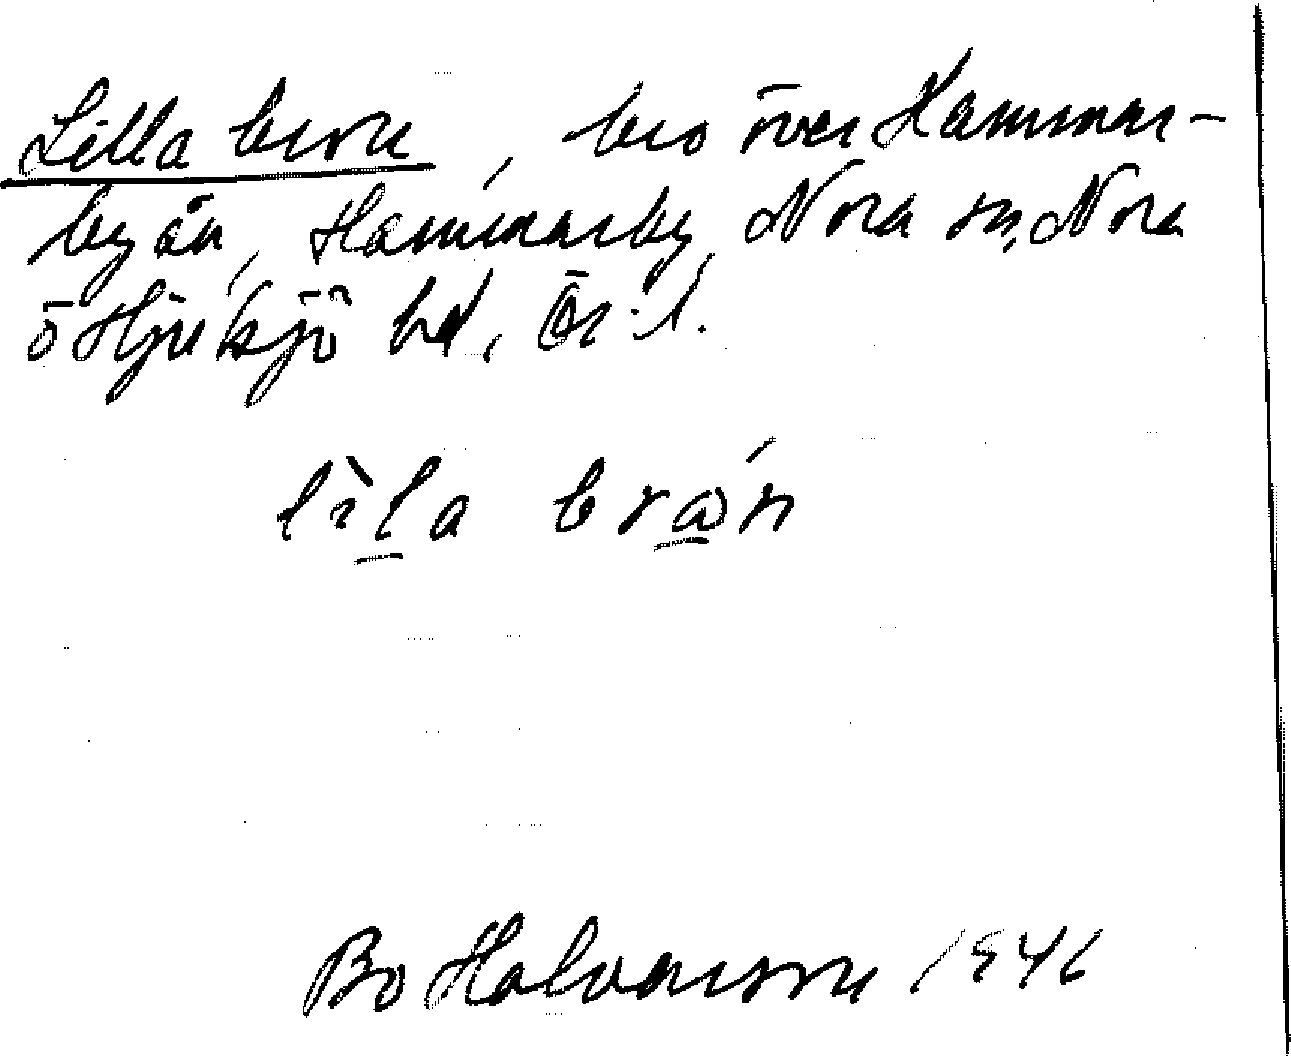 Lilla bron, bro över Hammar-
byån, Hammarby, Nora sn, Nora
o Hjulsjö hd, Ör. l.
lìla brón
Bo Halvarsson 1946